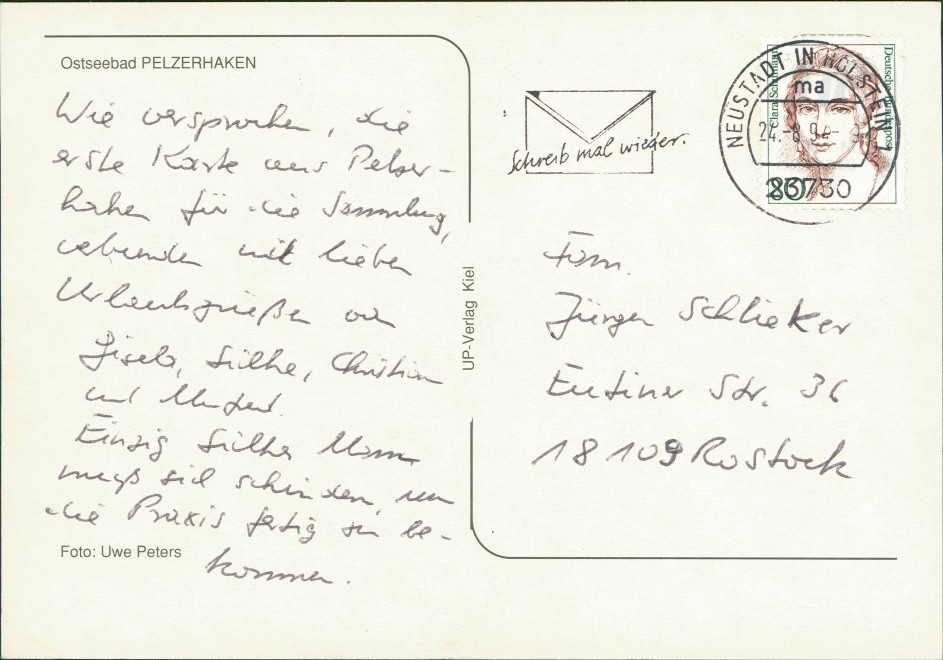 Ostseebad PELZERHAKEN
Wie versprochen, die
erste Karte aus Pelzer-
haken für die Sammlung,
verbunden mit lieben
Urlaubsgrüßen von
Gisela, Silke, Christian
und
Einzig Silkes Mann
muß sich schinden, um
die Praxis fertig zu be-
kommen.
Foto: Uwe Peters
UP-Verlag Kiel
Schreib mal wieder.
NEUSTADT IN HOLSTEIN 1
ma
24.-8.94-
23730
Clara Schumann
Deutsche Bundespost
80
Fam.
Jürgen Schlieker
Eutiner Str. 36
18109 Rostock